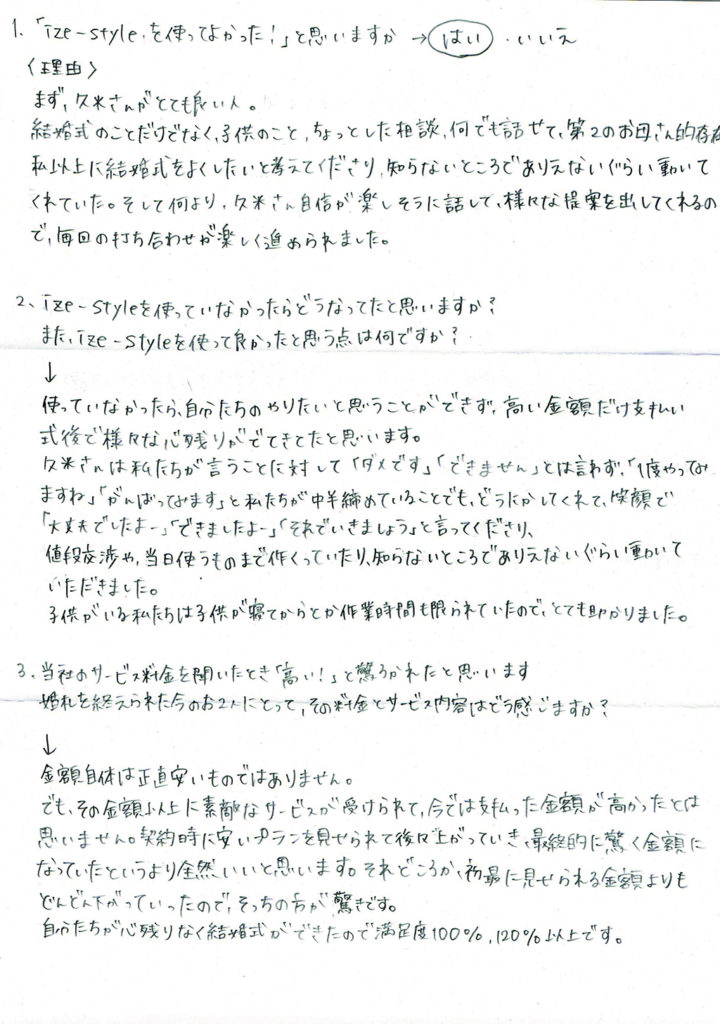 1. 「ize-style を使ってよかった!」と思いますか → はい ・ いいえ
〈理由〉
まず、久米さんがとても良い人。
結婚式のことだけでなく、子供のこと、ちょっとした相談、何でも話せて、第2のお母さん的存在
私以上に結婚式をよくしたいと考えてくださり、知らないところでありえないぐらい動いて
くれていた。そして何より、久米さん自信が楽しそうに話して、様々な提案を出してくれるの
で、毎回の打ち合わせが楽しく進められました。
2、ize-styleを使っていなかったらどうなってたと思いますか?
また、ize-styleを使って良かったと思う点は何ですか?
↓
使っていなかったら、自分たちのやりたいと思うことができず、高い金額だけ支払い
式後で様々な心残りがでてきてたと思います。
久米さんは私たちが言うことに対して「ダメです」「できません」とは言わず、「1度やってみ
ますね」「がんばってみます」と私たちが中半締めていることでも、どうにかしてくれて、笑顔で
「大丈夫でしたよー」「できましたよー」「それでいきましょう」と言ってくださり、
値段交渉や、当日使うものまで作くっていたり、知らないところでありえないぐらい動いて
いただきました。
子供がいる私たちは子供が寝てからとか作業時間も限られていたので、とても助かりました。
3、当社のサービス料金を聞いたとき「高い!」と驚ろかれたと思います
婚礼を終えられた今のお2人にとって、その料金とサービス内容はどう感ごますか?
↓
金額自体は正直安いものではありません。
でも、その金額以上に素敵なサービスが受けられて、今では支払った金額が高かったとは
思いません。契約時に安いプランを見せられて後々上がっていき、最終的に驚く金額に
なっていたというより全然いいと思います。それどころか、初最に見せられる金額よりも
どんどん下がっていったので、そっちの方が驚きです。
自分たちが心残りなく結婚式ができたので満足度100%、120%以上です。